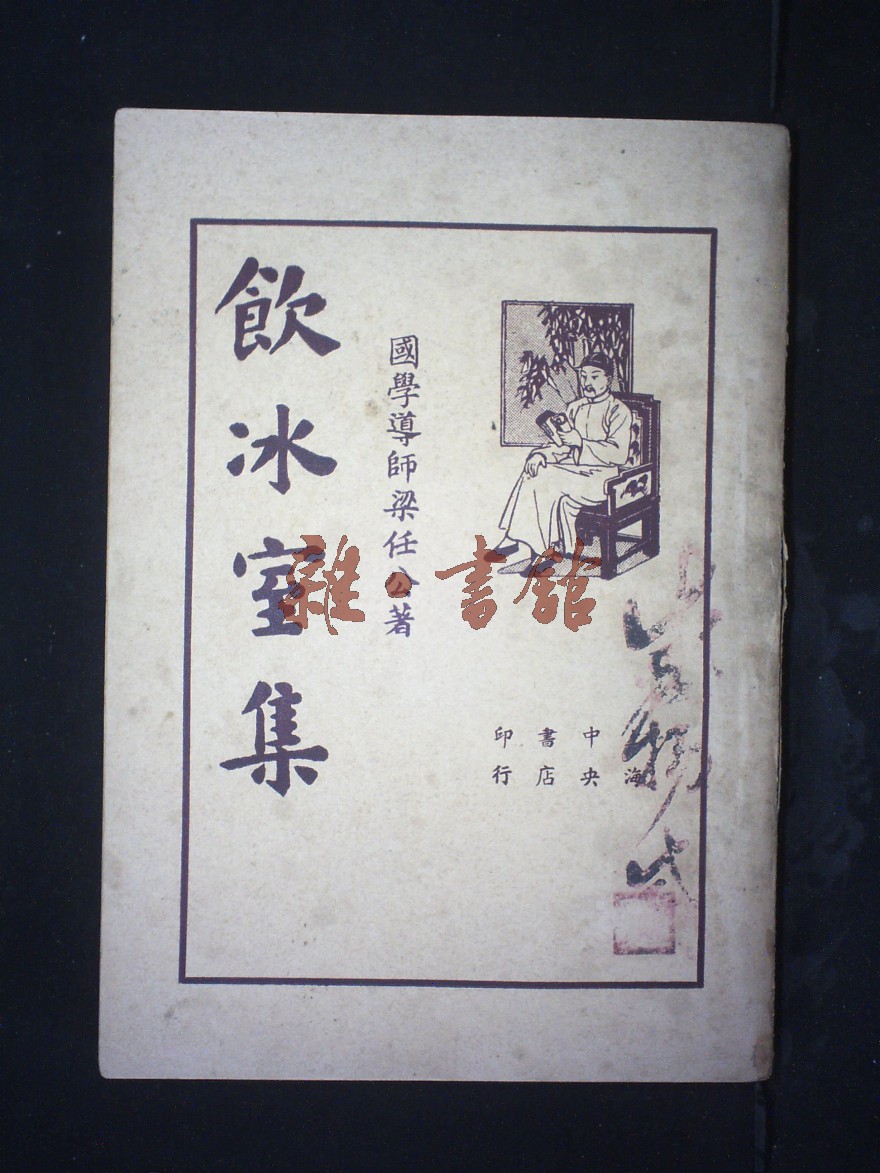 飲冰室集
國學導師梁任公著
海
中央
書店
印行
雜·書館